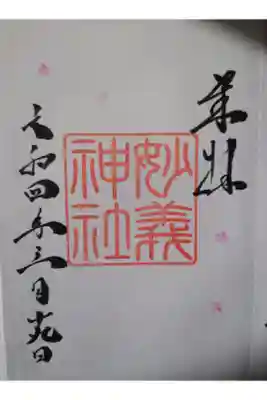 奉拝
妙義
神社
令和四年三月廿九日